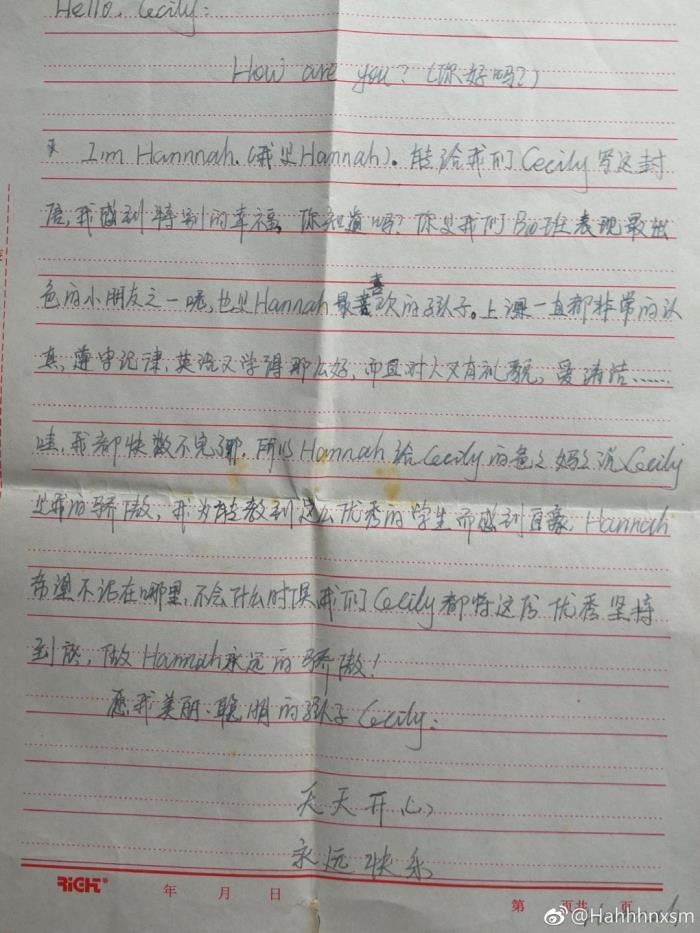 Hello, Cecily:
How are you? (你好吗?)
I'm Hannnah. (我是Hannah)。能给我们Cecily写这封
信,我感到特别的幸福,你知道吗?你是我们Bio班表现最出
色的小朋友之一呢,也是Hannah最喜欢的孩子。上课一直都非常的认
真,遵守纪律,英语又学得那么好,而且对人又有礼貌,爱清洁……
哇,我都快数不完了哪。所以Hannah给Cecily的爸爸妈妈说Cecily
是我的骄傲,我为能教到这么优秀的学生而感到自豪。Hannah
希望不论在哪里,不论什么时候我们Cecily都将这份优秀坚持
到底,做Hannah永远的骄傲!
愿我美丽、聪明的孩子Cecily:
天天开心
永远快乐
RIGHT 年 月 日 第 页共 页
@Hahhhnxsm